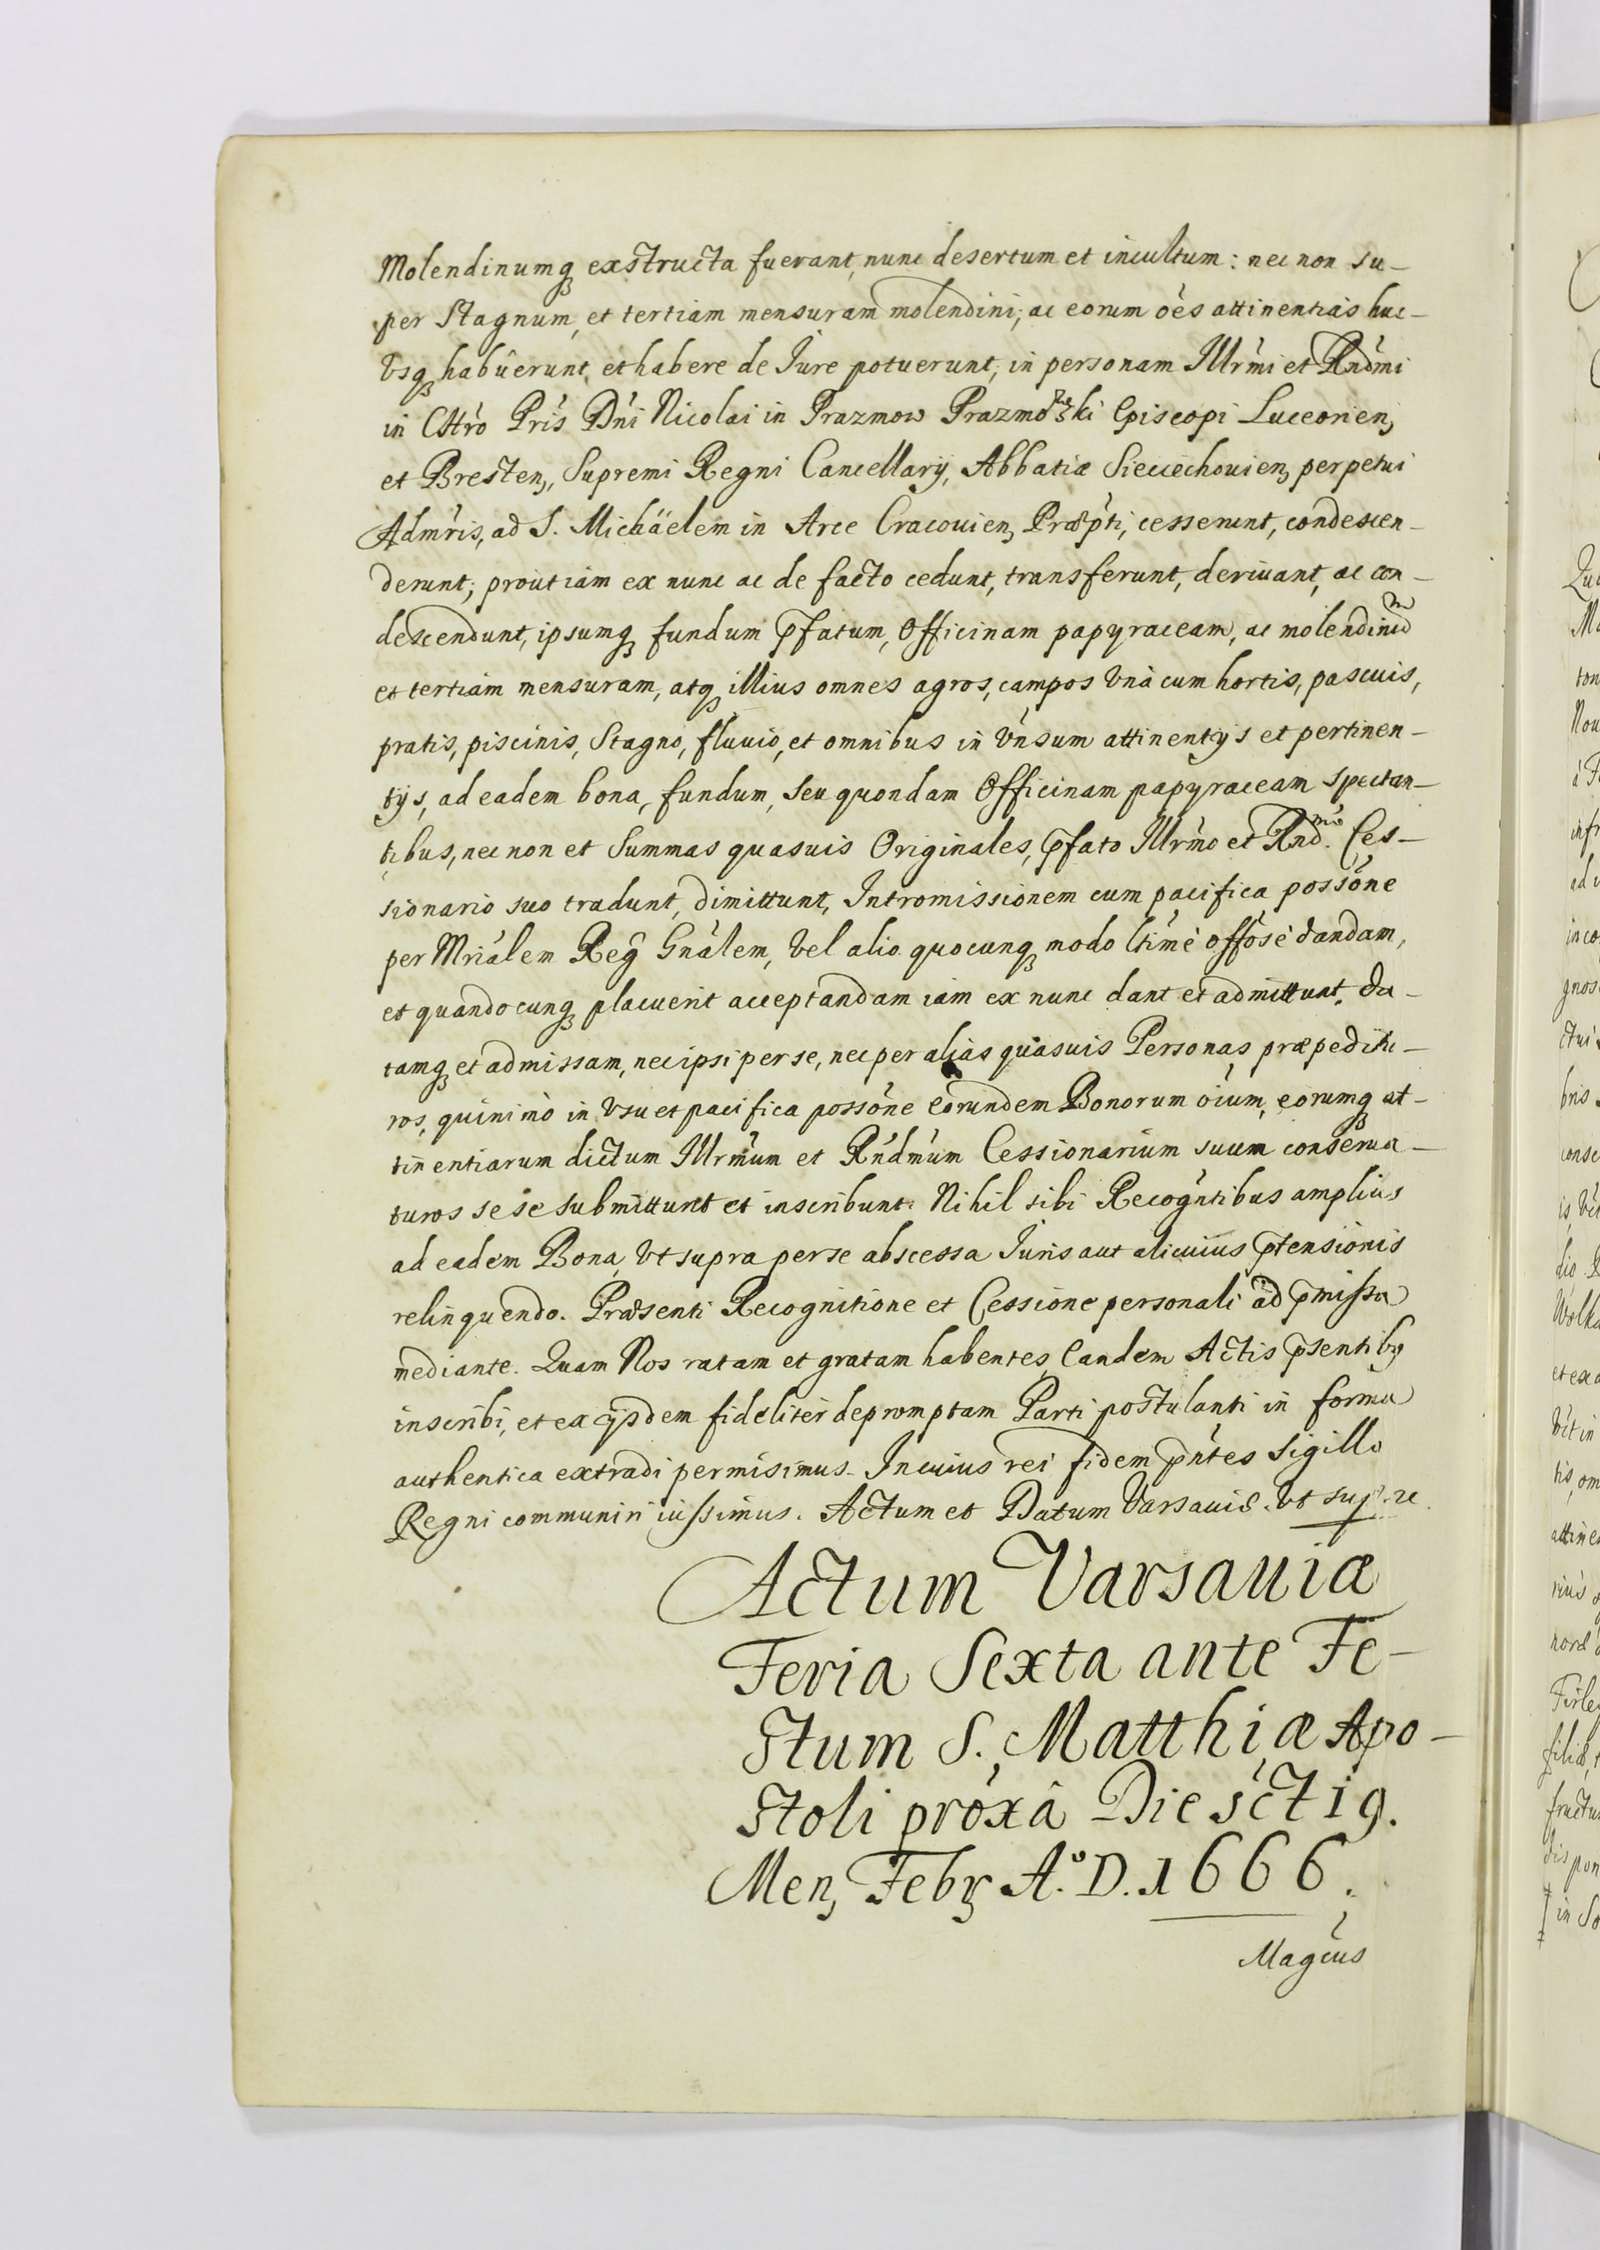 Molendinumq₃ exstructa fuerant, nunc desertum et incultum: nec non su-
per Stagnum, et tertiam mensuram molendini, ac eorum oẽs attinentias huc-
vsq₃ habuerunt, et habere de Iure potuerunt, in personam Illrmi et Rndmi
in Chro Pris Dni Nicolai in Prazmow Prazmowski Episcopi Luceorien₃
et Bresten₃, Supremi Regni Cancellarij, Abbatiæ Sieciechouien₃ perpetui
Admris, ad S. Michäelem in Arce Cracouien₃ Præpti, cesserunt, condescen-
derunt; prout iam ex nunc ac de facto cedunt, transferunt, deriuant, ac con-
descendunt, ipsumq₃ fundum p̃fatum, Officinam papyraceam, ac molendinũ
et tertiam mensuram, atq₃ illius omnes agros, campos vnà cum hortis, pascuis,
pratis, piscinis, Stagno, fluuio, et omnibus in vnsum attinentijs et pertinen-
tijs, ad eadem bona, fundum, seu quondam Officinam papyraceam spectan-
tibus, nec non et Summas quasuis Originales, p̃fato Illrmo et Rnd.mo Ces-
sionario suo tradunt, dimittunt, Intromissionem cum pacifica possõne
per Mrialem Reg̃ Gnalem, vel alio quocunq₃ modo ltime offose dandam,
et quandocunq₃ placuerit acceptandam iam ex nunc dant et admittunt, da-
tamq₃ et admissam, nec ipsi per se, nec per alias quasuis Personas præpeditu-
ros, quinimò in vsu et pacifica possõne eorundem Bonorum oium, eorumq₃ at-
tinentiarum dictum Illrmum et Rndmum Cessionarium suum conserua-
turos sese submittunt et inscribunt. Nihil sibi Recogntibus amplius
ad eadem Bona, vt supra per se abscessa Iuris aut alicuius p̃tensionis
relinquendo. Præsenti Recognitione et Cessione personali ad p̃missa
mediante. Quam Nos ratam et gratam habentes, Eandem Actis p̃sentibꝰ
inscribi, et ex ijsdem fideliter depromptam Parti postulanti in forma
authentica extradi permisimus. In cuius rei fidem p̃ntes Sigillo
Regni communiri iussimus. Actum et Datum Varsauiæ vt supra.
Actum Varsauiæ
Feria Sexta ante Fe-
stum S. Matthiæ Apo-
stoli proxa Die sct 19.
Men₃ Febr₃ A.º D. 1666.
Magcus